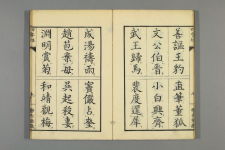 善謳王豹 直筆董狐
文公伯晉 小白興齊
武王歸馬 裴度還犀
咸湯禱雨 竇儼占奎
趙苞棄母 吳起殺妻
淵明賞菊 和靖觀梅